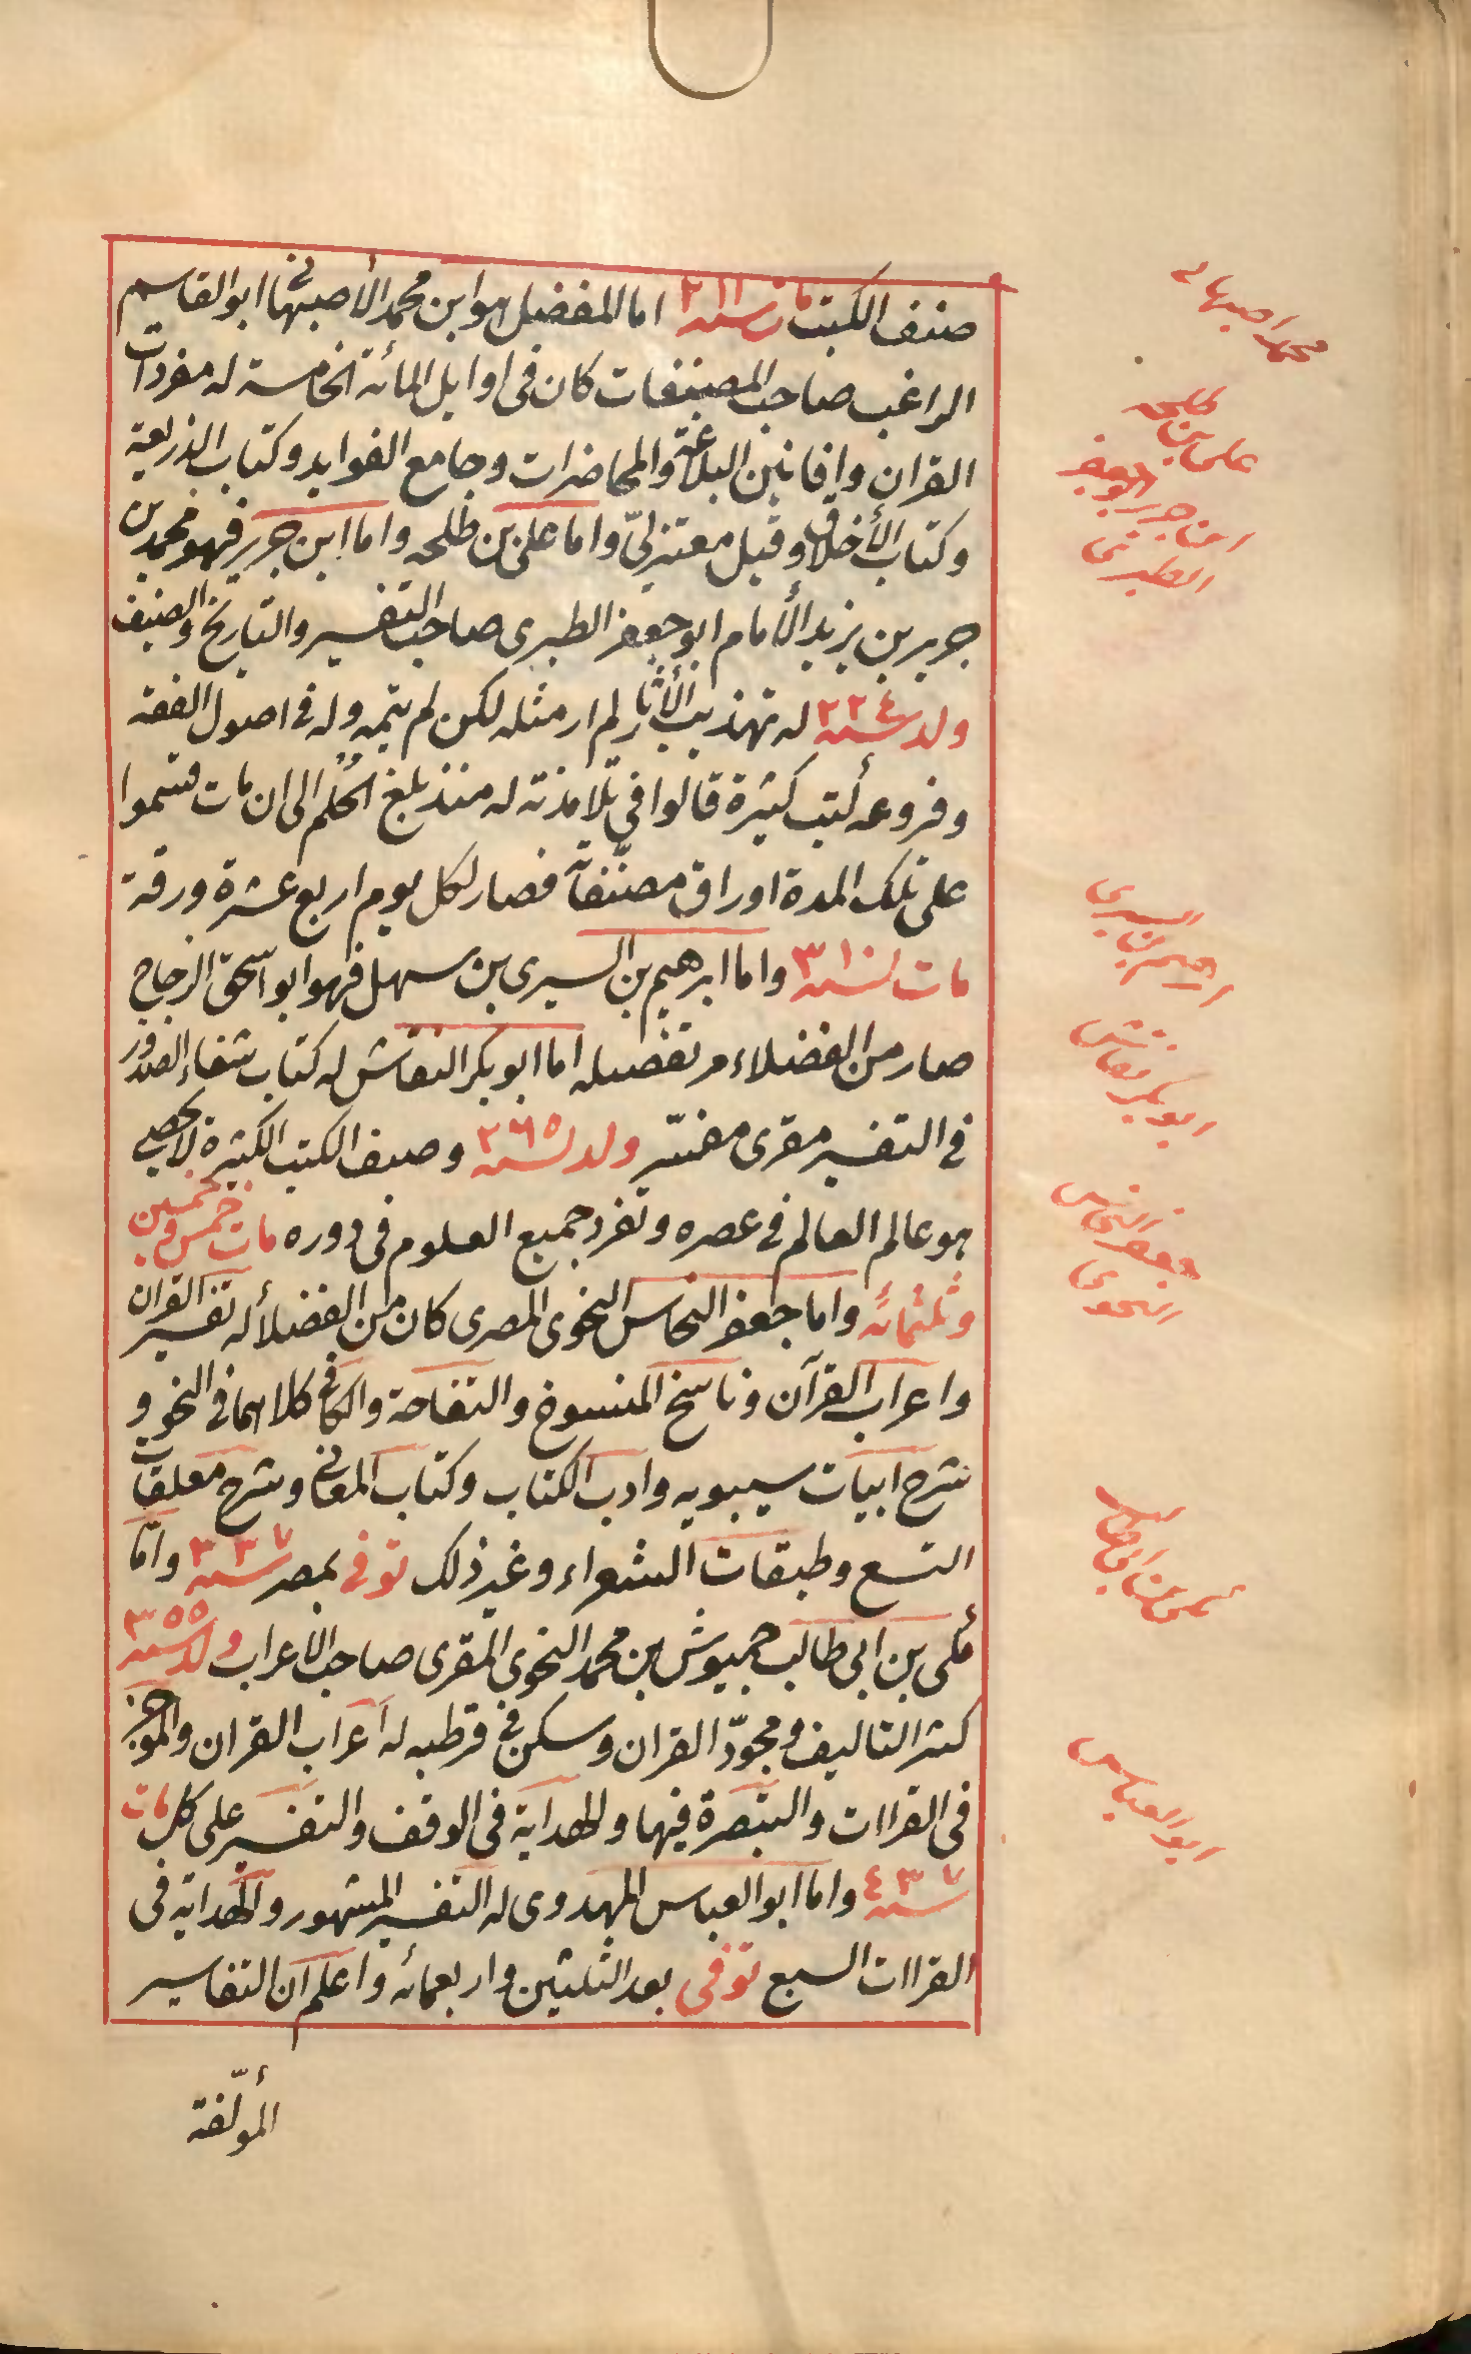 صنف الكتب مات سنه ٢١١ اما المفضل هو ابن محمد الأصبهاني ابو القاسم
الراغب صاحب المصنفات كان فى اوايل المائة الخامسة له مفردات
القران وافانين البلاغة والمحاضرات وجامع الفوايد وكتاب الذريعة
وكتاب الأخلاق وقيل معتزلىّ واما على بن طلحه واما ابن جرير فهو محمد بن
جرير بن يزيد الأمام ابو جعفر الطبرى صاحب التفسير والتاريخ والصنيف
ولد سنه ٢٢٤ له تهذيب الأثار لم ار مثله لكن لم يتمه وله فى اصول الفقه
وفروعه كتب كثيرة قالوا فى تلامذته له منذ بلغ الحُلُم الى ان مات قسموا
على تلك المدة اوراق مصنّفاته فصار لكل يوم اربع عشرة ورقة
مات سنه ٣١٠ واما ابرهيم بن السيرى بن سهل فهو ابو اسحق الزجاج
صار من الفضلاء مر تفصيله اما ابو بكر النقاش له كتاب شفاء الصدور
فى التفسير مقرى مفسّر ولد سنه ٢٦٥ وصنف الكتب الكثيرة لا يحصى
هو عالم العالم فى عصره وتفرد جميع العلوم فى دوره مات خمس وخمسين
وثلثمائه واما جعفر النحاس النحوى المصرى كان من الفضلأ له تفسير القران
واعراب القرآن وناسخ المنسوخ والتفاحة والكافى كلاهما فى النحو و
شرح ابيات سيبويه وادب الكتاب وكتاب المعانى وشرح معلقات
التسع وطبقات الشعراء وغير ذلك توفى بمصر سنه ٣٣٧ وامّا
مكى بن ابى طالب حميوش بن محمد النحوى المقرى صاحب الاعراب ولد سنه ٣٥٥
كثر التاليف ومجودّ القران وسكن فى قرطبه له اعراب القران والموجز
فى القراات والتبصرة فيها والهداية فى الوقف والتفسير على كل مات
سنه ٤٣٧ واما ابو العباس المهدوى له التفسير المشهور والهداية فى
القراات السبع توفى بعد الثلثين واربعمائه واعلم ان التفاسير
المؤلّفة
محمد اصبهانى
على بن طلحه
ابن جرير ابو جعفر
الطبرى
ابرهيم بن السيرى
ابو بكر نقاش
جعفر النحاس
النحوى
مكى بن ابى طالب
ابو العباس